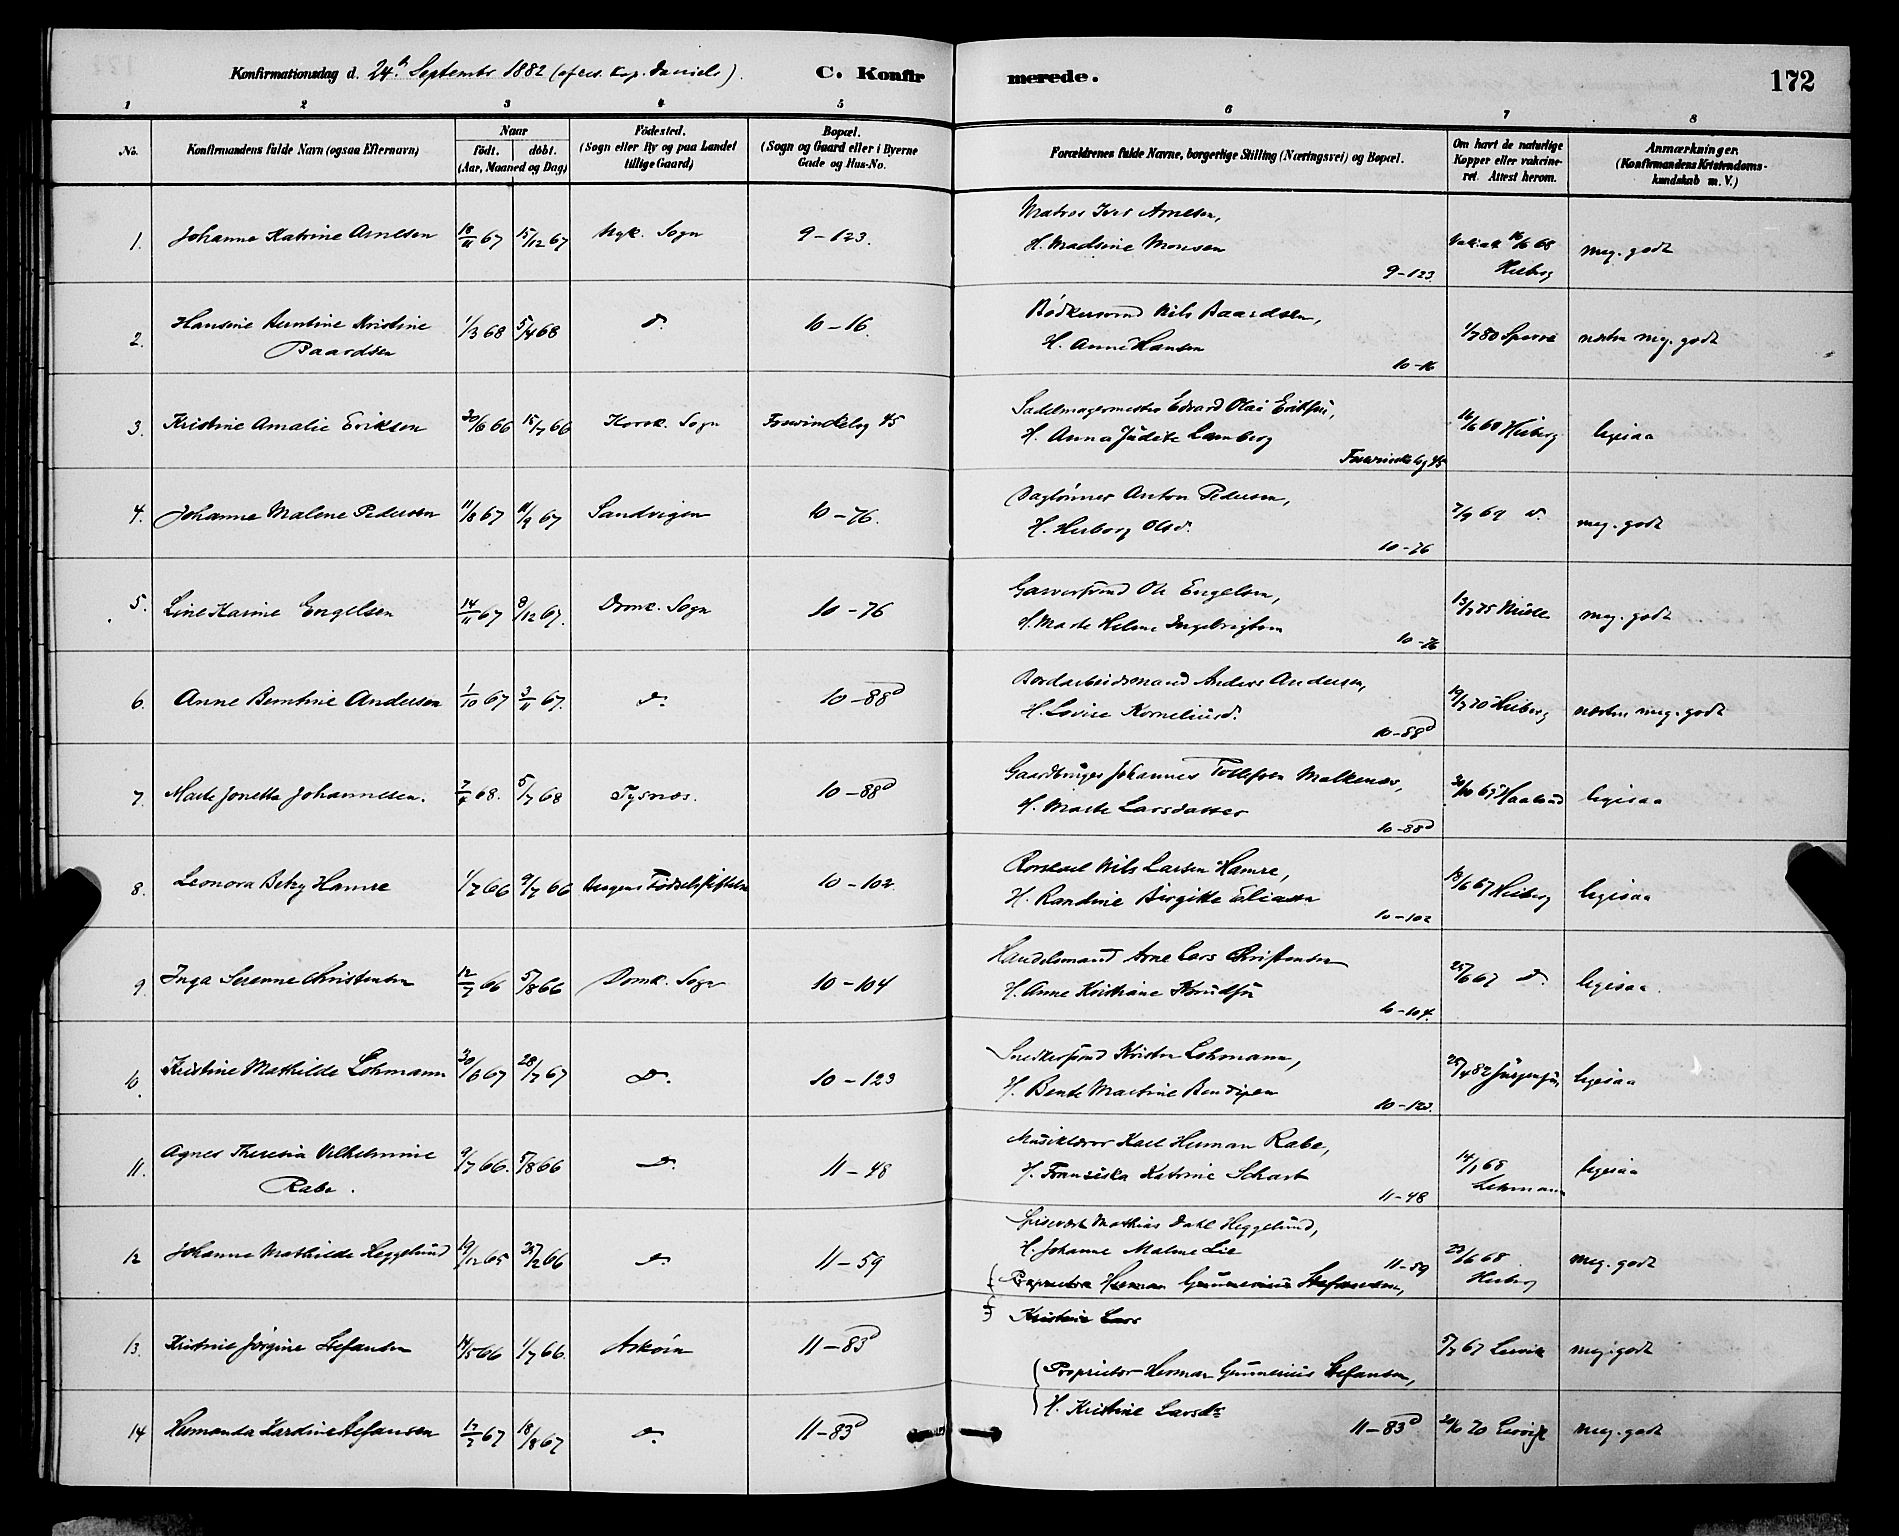 Konfirmationsdag d. 24de September 1882 C. Konfirmerede. 172
1 2 3 4 5 6 7 8
No. Konfirmandens fulde Navn (ogsaa Efternavn) Naar födt. döbt. (Aar, Maaned og Dag) Födested. (Sogn eller By og paa Landet tillige Gaard) Bopæl. (Sogn og Gaard eller i Byerne Gade og Hus-No. Forældrenes fulde Navne, borgerlige Stilling (Næringsvei) og Bopæl. Om havt de naturlige Kopper eller vakcineret. Attest herom. Anmærkninger. (Konfirmandens Kristendomskundskab m. V.)
1. Johanne Katrine Arnesen 18/11 67 15/12 67 Nyk. Sogn 9-123. Matros Iver Arnesen,
H. Madsine Monsen 9-123. 16/6 68 Heiberg meg. godt
2. Hansine Berntine Kristine
Baardsen 1/3 68 5/4 68 d. 10-16. Bödkersvend Nils Baardsen,
H. Anne Hansen 10-16 1/7 80 Sparre næsten meg. godt
3. Kristine Amalie Eriksen 30/6 66 15/7 66 Korsk. Sogn 45 Sadelmagermester Edvard Olai Eriksen,
H. Anna Judite Lamberg 45 16/6 68 Heiberg ligesaa
4. Johanne Malene Pedersen 11/8 67 11/9 67 Sandvigen 10-76. Daglönner Anton Pedersen,
H. Herborg Olsd. 10-76 7/9 69 d. meg. godt
5. Line Karine Engelsen 14/11 67 8/12 67. Domk. Sogn 10-76 Garversvend Ole Engelsen,
H. Marte Helene Ingebrigtsen 10-76 13/7 75 meg. godt
6. Anne Berntine Andersen 1/10 67 3/11 67. d. 10-88d Bordarbeidsmand Anders Andersen,
H. Lovise Korneliusd. 10-88d 19/7 70 Heiberg næsten meg. godt
7. Marte Jonetta Johannesen. 7/4 68. 5/7 68 Tysnæs. 10-88d Gaardbruger Johannes Tollefsen Malkenæs,
H. Marte Larsdatter 10-88d ligesaa
8. Leonora Betzy Hamre 1/7 66 9/7 66 Bergens Födselsstiftelse 10-102. Nils Larsen Hamre,
H. Randine Birgitte Eliasen 10-102 18/6 67 Heiberg ligesaa
9. Inga Serenne Christensen 12/7 66 5/8 66 Domk. Sogn 10-104 Handelsmand Arne Lars Christensen
H. Anne Kristiane Knudsen 10-104. 25/6 67 d. ligesaa.
10. Kristine Mathilde Lohmann 30/6 67 28/7 67 d. 10-123 Snedkersvend Kristen Lohmann,
H. Bente Martine Bendixen 10-123. 25/4 82 Jürgensen ligesaa
11. Agnes Theresia Vilhelmine
Rabe. 9/7 66. 5/8 66 d. 11-48 Musiklærer Karl Herman Rabe,
H. Franziska Katrine Schart 11-48 14/1 68
Lehmann ligesaa
12 Johanne Mathilde Heggelund 19/12 65 25/2 66 d. 11-59 Spisevært Mathias Dahl Heggelund,
H. Johanne Malene Lie 11-59 23/6 68
Heiberg meg. godt
Proprietær Herman Gunnerius Stefansen,
Kristine Lars
13. Kristine Jörgine Stefansen 14/5 66 1/7 66. Askøen 11-83d Proprietær Herman Gunnerius Stefansen, 5/7 67 Lervik meg. godt
14 Hermanda Kardine Stefansen 12/7 67 18/8 67 d. 11-83d H. Kristine Larsdtr 11-83d 20/6 70 Lervik meg. godt